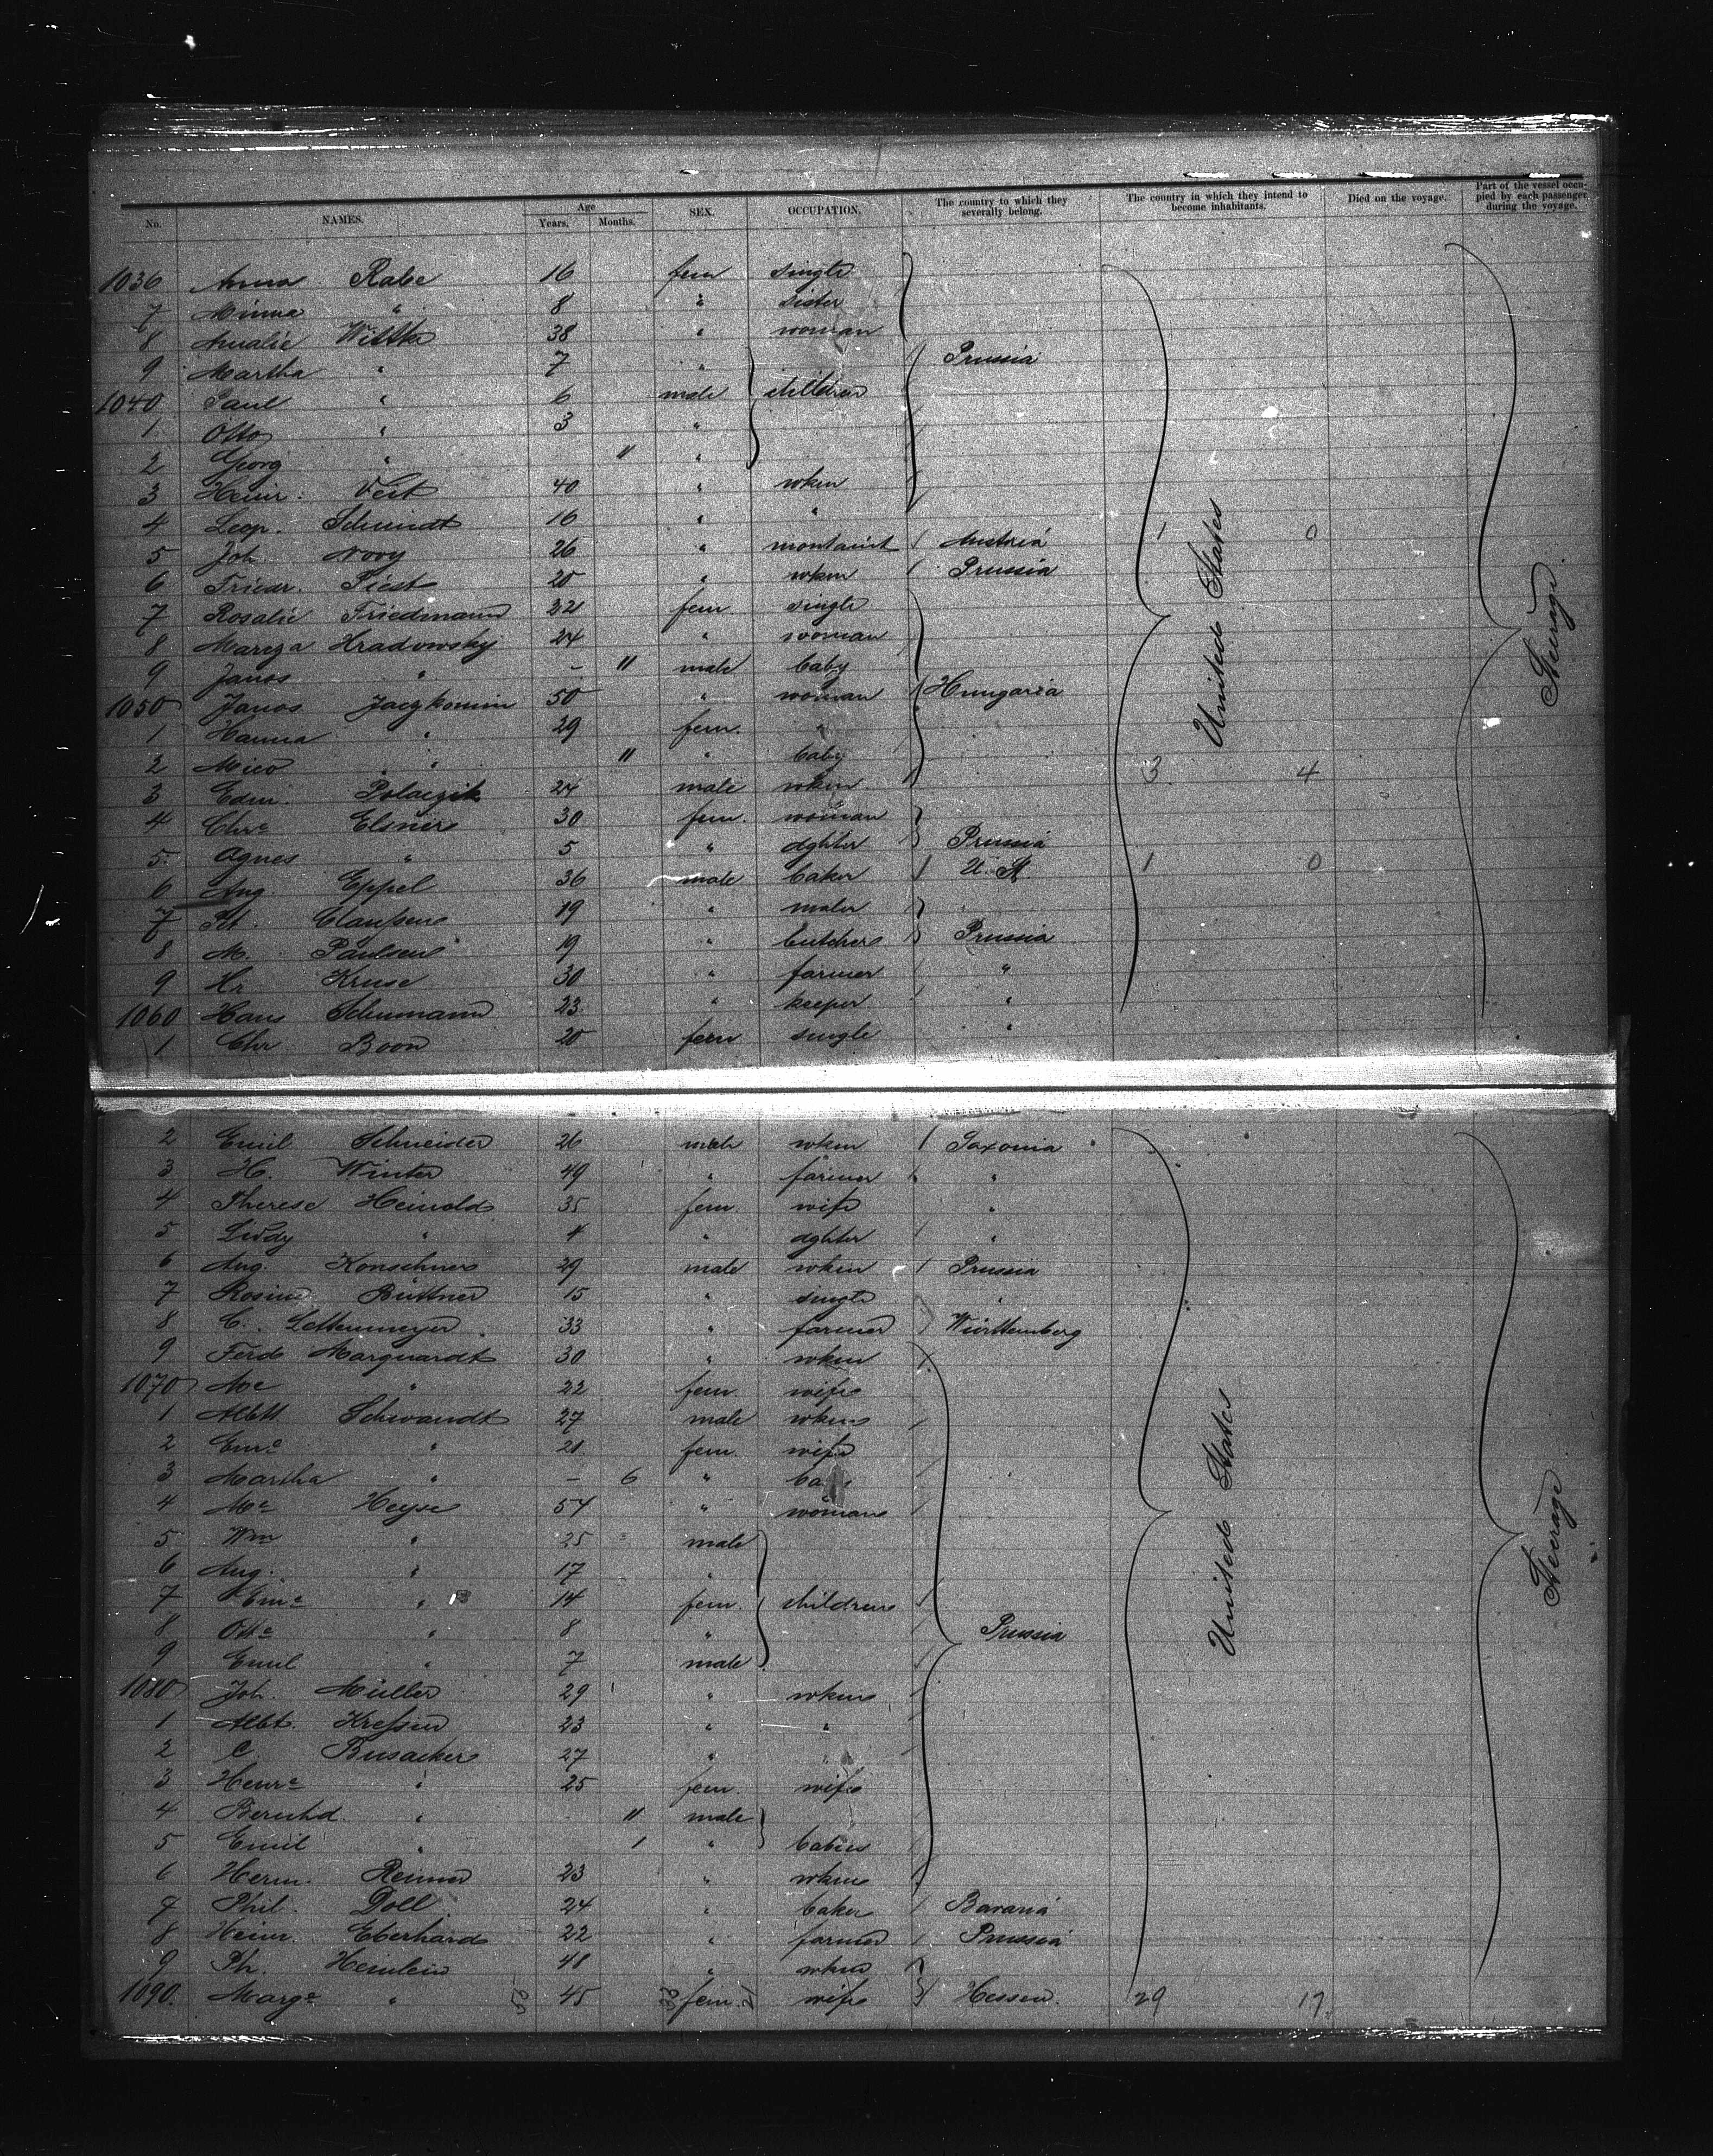 No. NAMES. Age Years. Months. SEX. OCCUPATION. The country to which they severally belong. The country in which they intend to become inhabitants. Died on the voyage. Part of the vessel occupied by each passenger during the voyage.
1036 Anna Rabe 16 fem single
7 Minna " 8 " sister
8 Amalie Wittke 38 " woman
9 Martha " 7 " Prussia
1040 Paul " 6 male children
1 Otto " 3 "
2 Georg " 11 "
3 Heinr. Veit 40 " wkm
4 Leop. Schmidt 16 " "
5 Joh. Novy 26 " Austria 1 0
6 Friedr. Piest 20 " wkm Prussia
7 Rosalie Friedmann 22 fem single
8 Marcza Hradowsky 24 " woman
9 Janos " – 11 male baby
1050 Janos 50 " woman Hungaria
1 Hanna " 29 fem. "
2 Mico " 11 " baby 3 4
3 Edm. Polaczik 24 male wkm
4 Chre Elsner 30 fem. woman
5 Agnes " 5 " dghter Prussia
6 Aug. Eppel 36 male baker U. St 1 0
7 Pet. Claußen 19 "
8 M. Paulsen 19 " butcher Prussia
9 Hr Kruse 30 " farmer "
1060 Hans Schumann 23 " keeper "
1 Chr Boon 20 fem single "
United States
Steerage
2 Emil Schneider 26 male wkm Saxonia
3 H. Winter 49 " farmer "
4 Therese Heinold 35 fem wife "
5 Liddy " 4 " dghter "
6 Aug. Konschner 29 male wkm Prussia
7 Rosine Büttner 15 " single "
8 C. Lettenmeyer 33 " farmer Württemberg
9 Ferd Marquardt 30 " wkm
1070 Me " 22 fem wife
1 Albtt Schwandt 27 male wkm
2 Eme " 21 fem. wife
3 Martha " – 6 "
4 Me Heyse 54 " woman
5 Wm " 25 male
6 Aug. " 17 "
7 Eme " 14 fem. children
8 Otte " 8 " Prussia
9 Emil " 7 male
1080 Joh. Müller 29 " wkm
1 Albt. Kreßin 23 " "
2 C Busacker 27 " "
3 Henre " 25 fem. wife
4 Bernhd. " 11 male
5 Emil " 1 " babies
6 Herm. Reimer 23 " wkm
7 Phil. Doll 24 " baker Bavaria
8 Heinr. Eberhard 22 " farmer Prussia
9 Ph. Heinlein 48 " wkm
1090. Marge " 45 fem. wife Hessen. 29 17
United States
Steerage